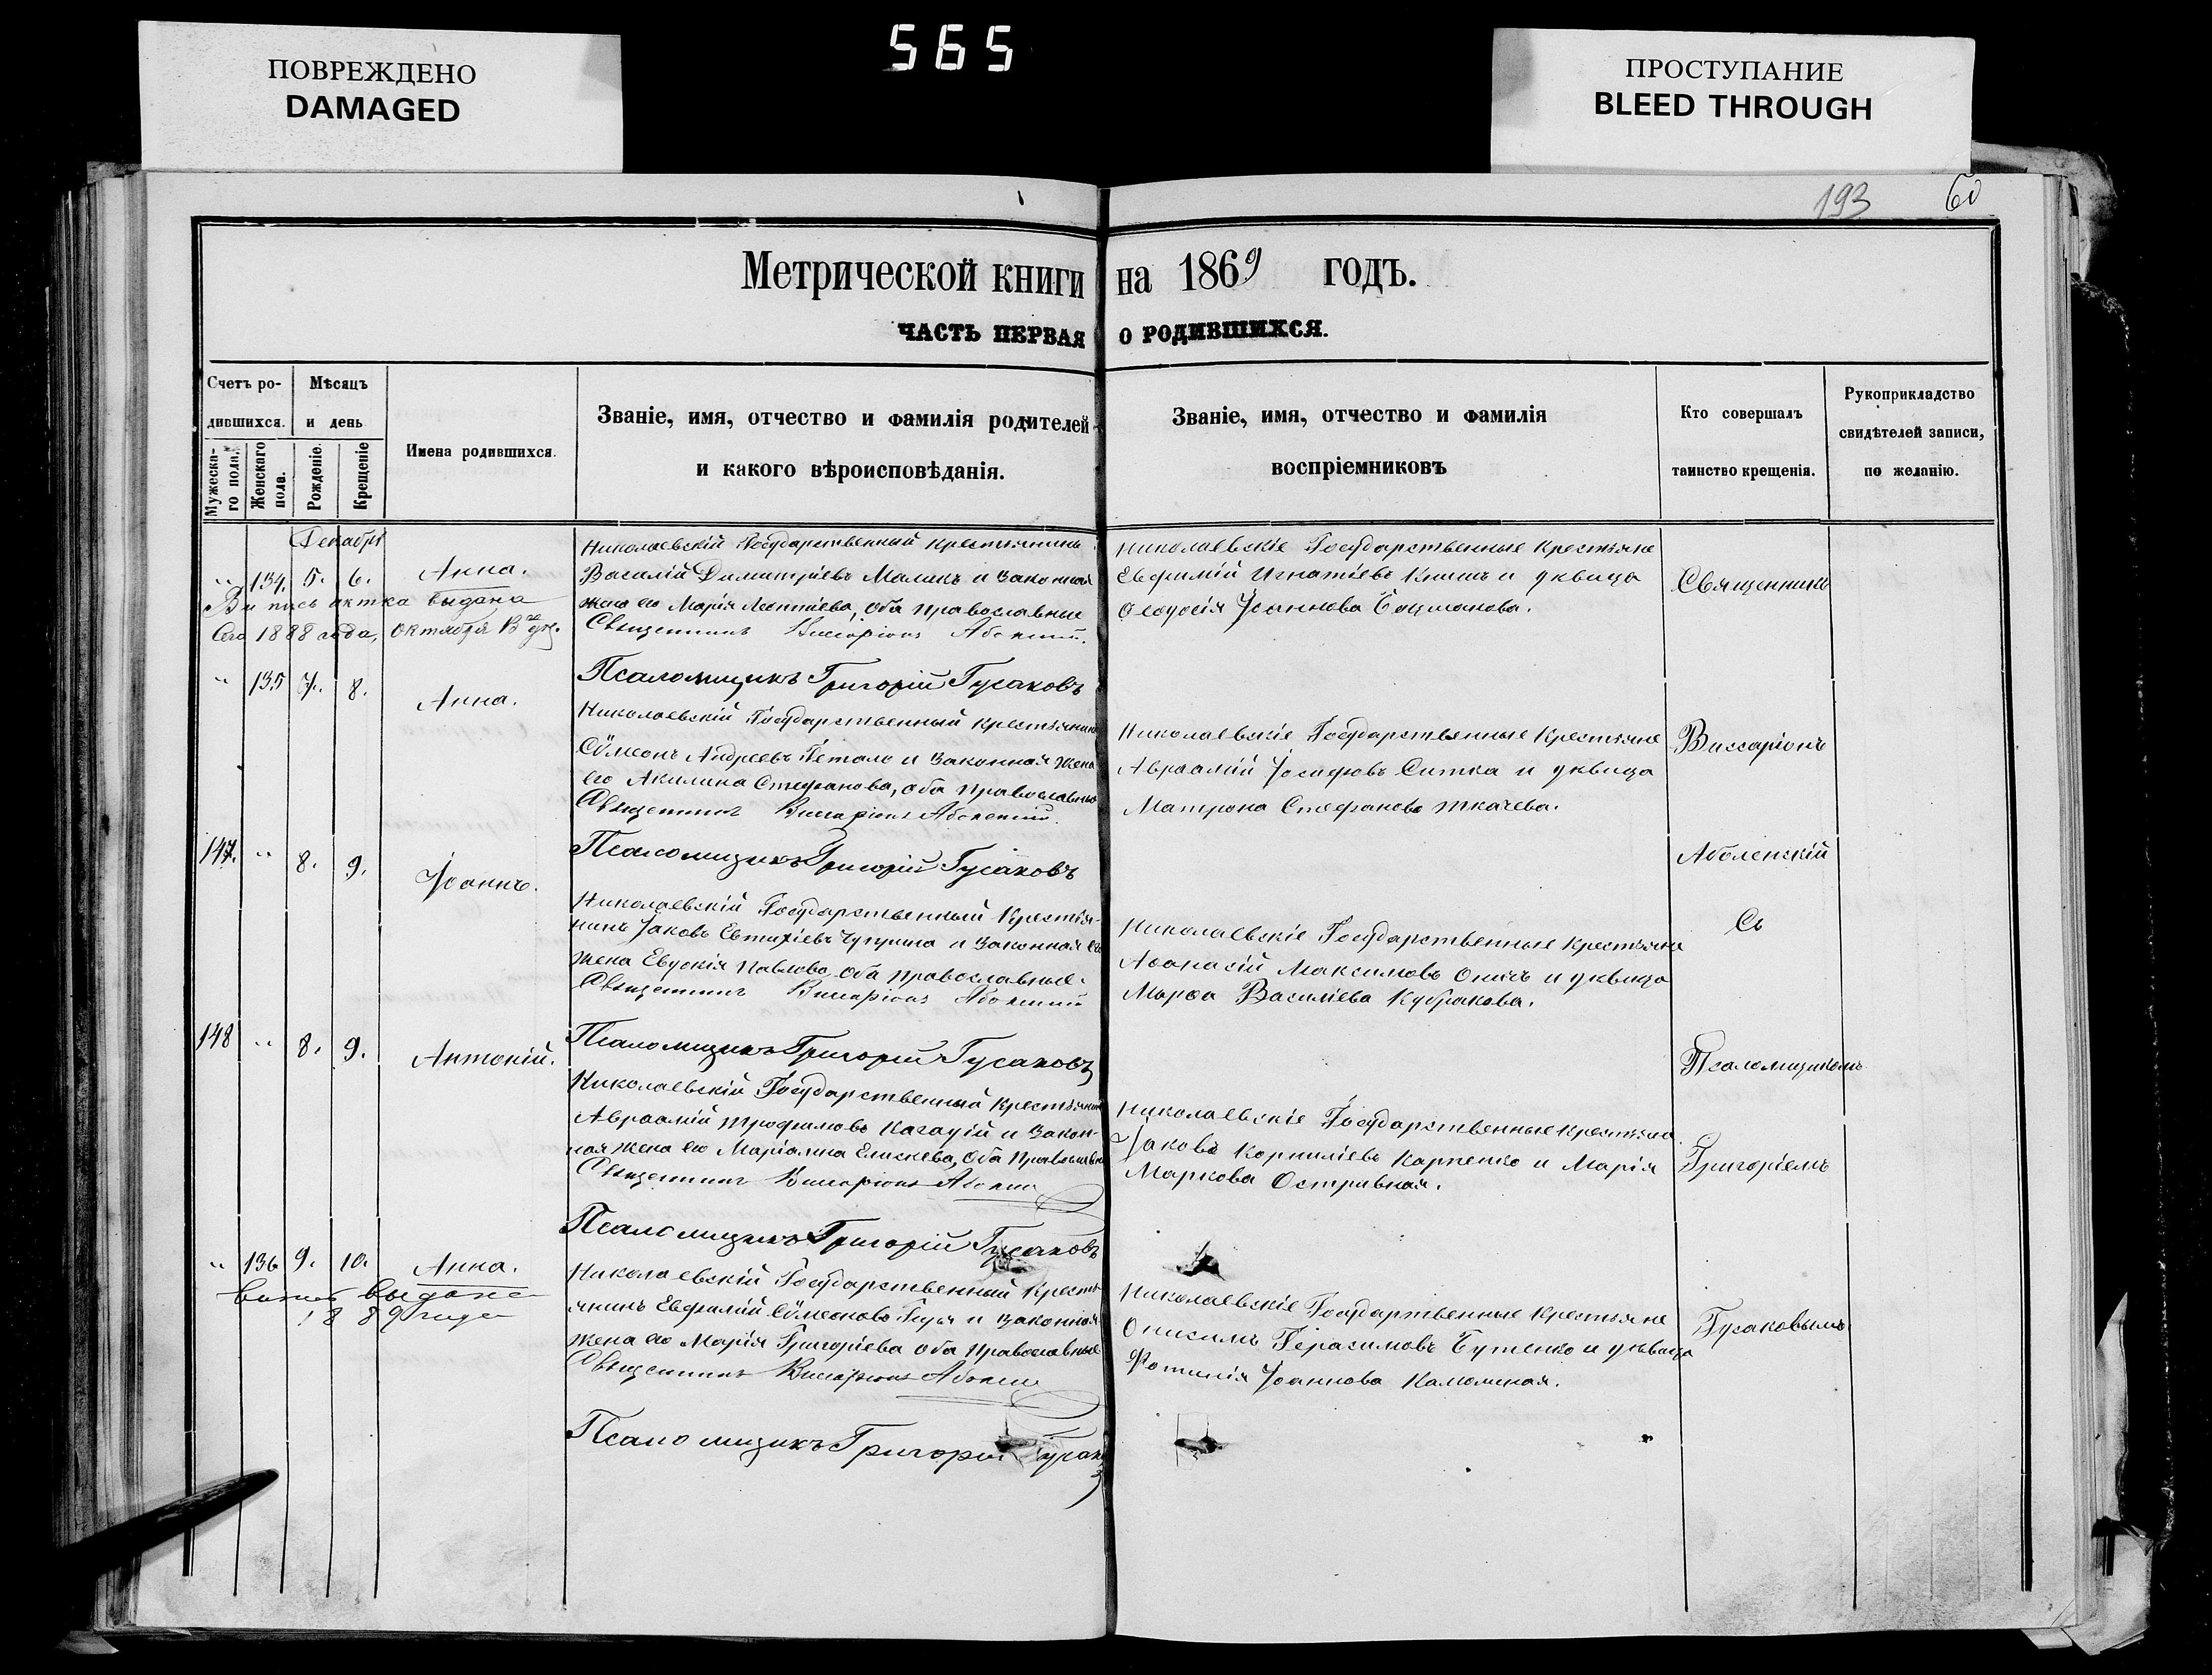 565
ПОВРЕЖДЕНО
DAMAGED
ПРОСТУПАНИЕ
BLEED THROUGH
193 60
Метрической книги на 1869 годъ.
ЧАСТЬ ПЕРВАЯ О РОДИВШИХСЯ.
Счетъ ро-
дившихся.
Мужеска-
го пола.
Женскаго
пола.
Мѣсяцъ
и день
Рожденіе.
Крещеніе
Имена родившихся.
Званіе, имя, отчество и фамилія родителей
и какого вѣроисповѣданія.
Званіе, имя, отчество и фамилія
воспріемниковъ
Кто совершалъ
таинство крещенія.
Рукоприкладство
свидѣтелей записи,
по желанію.
Декабрь
" 134. 5. 6. Анна.
выдана
1888 года, октября
Николаевскій Государственный крестьянинъ
Василій Димитріевъ Маликъ и законная
жена его Марія Леонтіева, оба православные
Священникъ Виссаріонъ
Псаломщикъ Григорій Гусаковъ
Николаевскіе Государственные крестьяне
Евфимій Игнатіевъ Книшъ и дѣвица
Ѳеодосія Іоаннова
" 135 7. 8. Анна.
Николаевскій Государственный крестьянинъ
Сѵмеонъ Андреевъ и законная жена
его Акилина Стефанова, оба православные
Священникъ Виссаріонъ
Псаломщикъ Григорій Гусаковъ
Николаевскіе Государственные крестьяне
Авраамій Іосифовъ Ситка и дѣвица
Матрона Стефанова Ткачева.
147. " 8. 9. Іоаннъ.
Николаевскій Государственный крестья-
нинъ Іаковъ Евтихіевъ и законная его
жена Евдокія Павлова оба православные.
Священникъ Виссаріонъ
Псаломщикъ Григорій Гусаковъ
Николаевскіе Государственные крестьяне
Аѳанасій Максимовъ и дѣвица
Марѳа Василіева Кудракова.
148 " 8. 9. Антоній.
Николаевскій Государственный крестьянинъ
Авраамій Трофимовъ и закон-
ная жена его Маріанна оба
Священникъ Виссаріонъ
Псаломщикъ Григорій Гусаковъ
Николаевскіе Государственные крестьяне
Іаковъ Корниліевъ Карпенко и Марія
Маркова Остривная.
" 136 9. 10. Анна.
выдана
1889 года
Николаевскій Государственный кресть-
янинъ Евфимій Сѵмеоновъ и законная
жена его Марія Григоріева оба православные
Священникъ Виссаріонъ
Псаломщикъ Григорій
Николаевскіе Государственные крестьяне
Онисимъ Герасимовъ Бутенко и дѣвица
Фотинія Іоаннова
Священникъ
Виссаріонъ
Аболенскій
Съ
Псаломщикомъ
Григоріемъ
Гусаковымъ